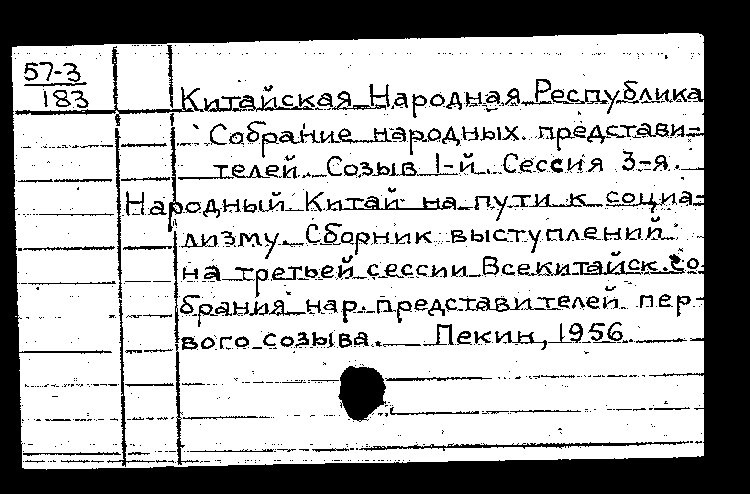 57-3
183
Китайская Народная Республика
Собрание народных представи-
телей. Созыв 1-й. Сессия 3-я.
Народный Китай на пути к социа-
лизму. Сборник выступлений
на третьей сессии Всекитайск. со
брания нар. представителей пер-
вого созыва. Пекин, 1956